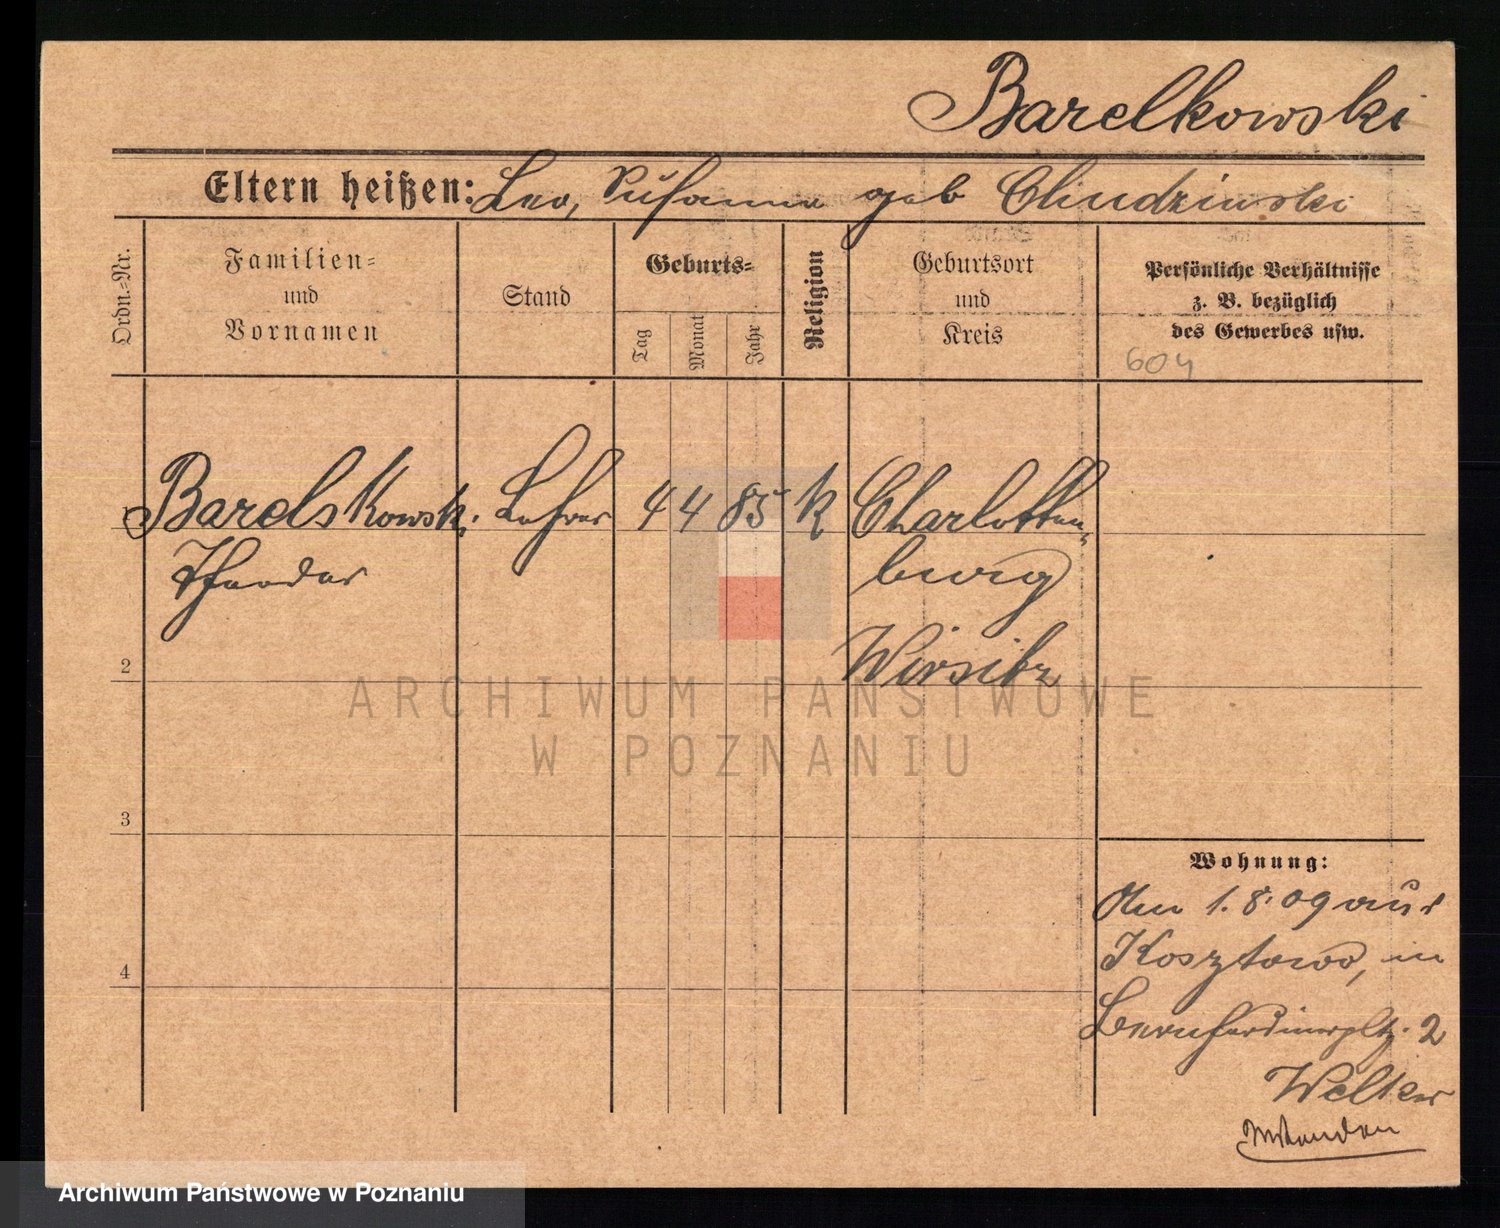 Barelkowski
Eltern heißen: Leo, Susanna geb Chudzinski
Ordn.-Nr.
Familien-
und
Vornamen
Stand
Geburts-
Tag
Monat
Jahr
Religion
Geburtsort
und
Kreis
Persönliche Verhältnisse
z. B. bezüglich
des Gewerbes usw.
604
1 Barelskowski Lehrer 4 4 85 k Charlotten-
Theodor burg
Wirsitz
2
3
4
Wohnung:
Am 1.8.09 aus
Kosztowo, in
Bernhardinerpltz. 2
Welker
ARCHIWUM PAŃSTWOWE
W POZNANIU
Archiwum Państwowe w Poznaniu